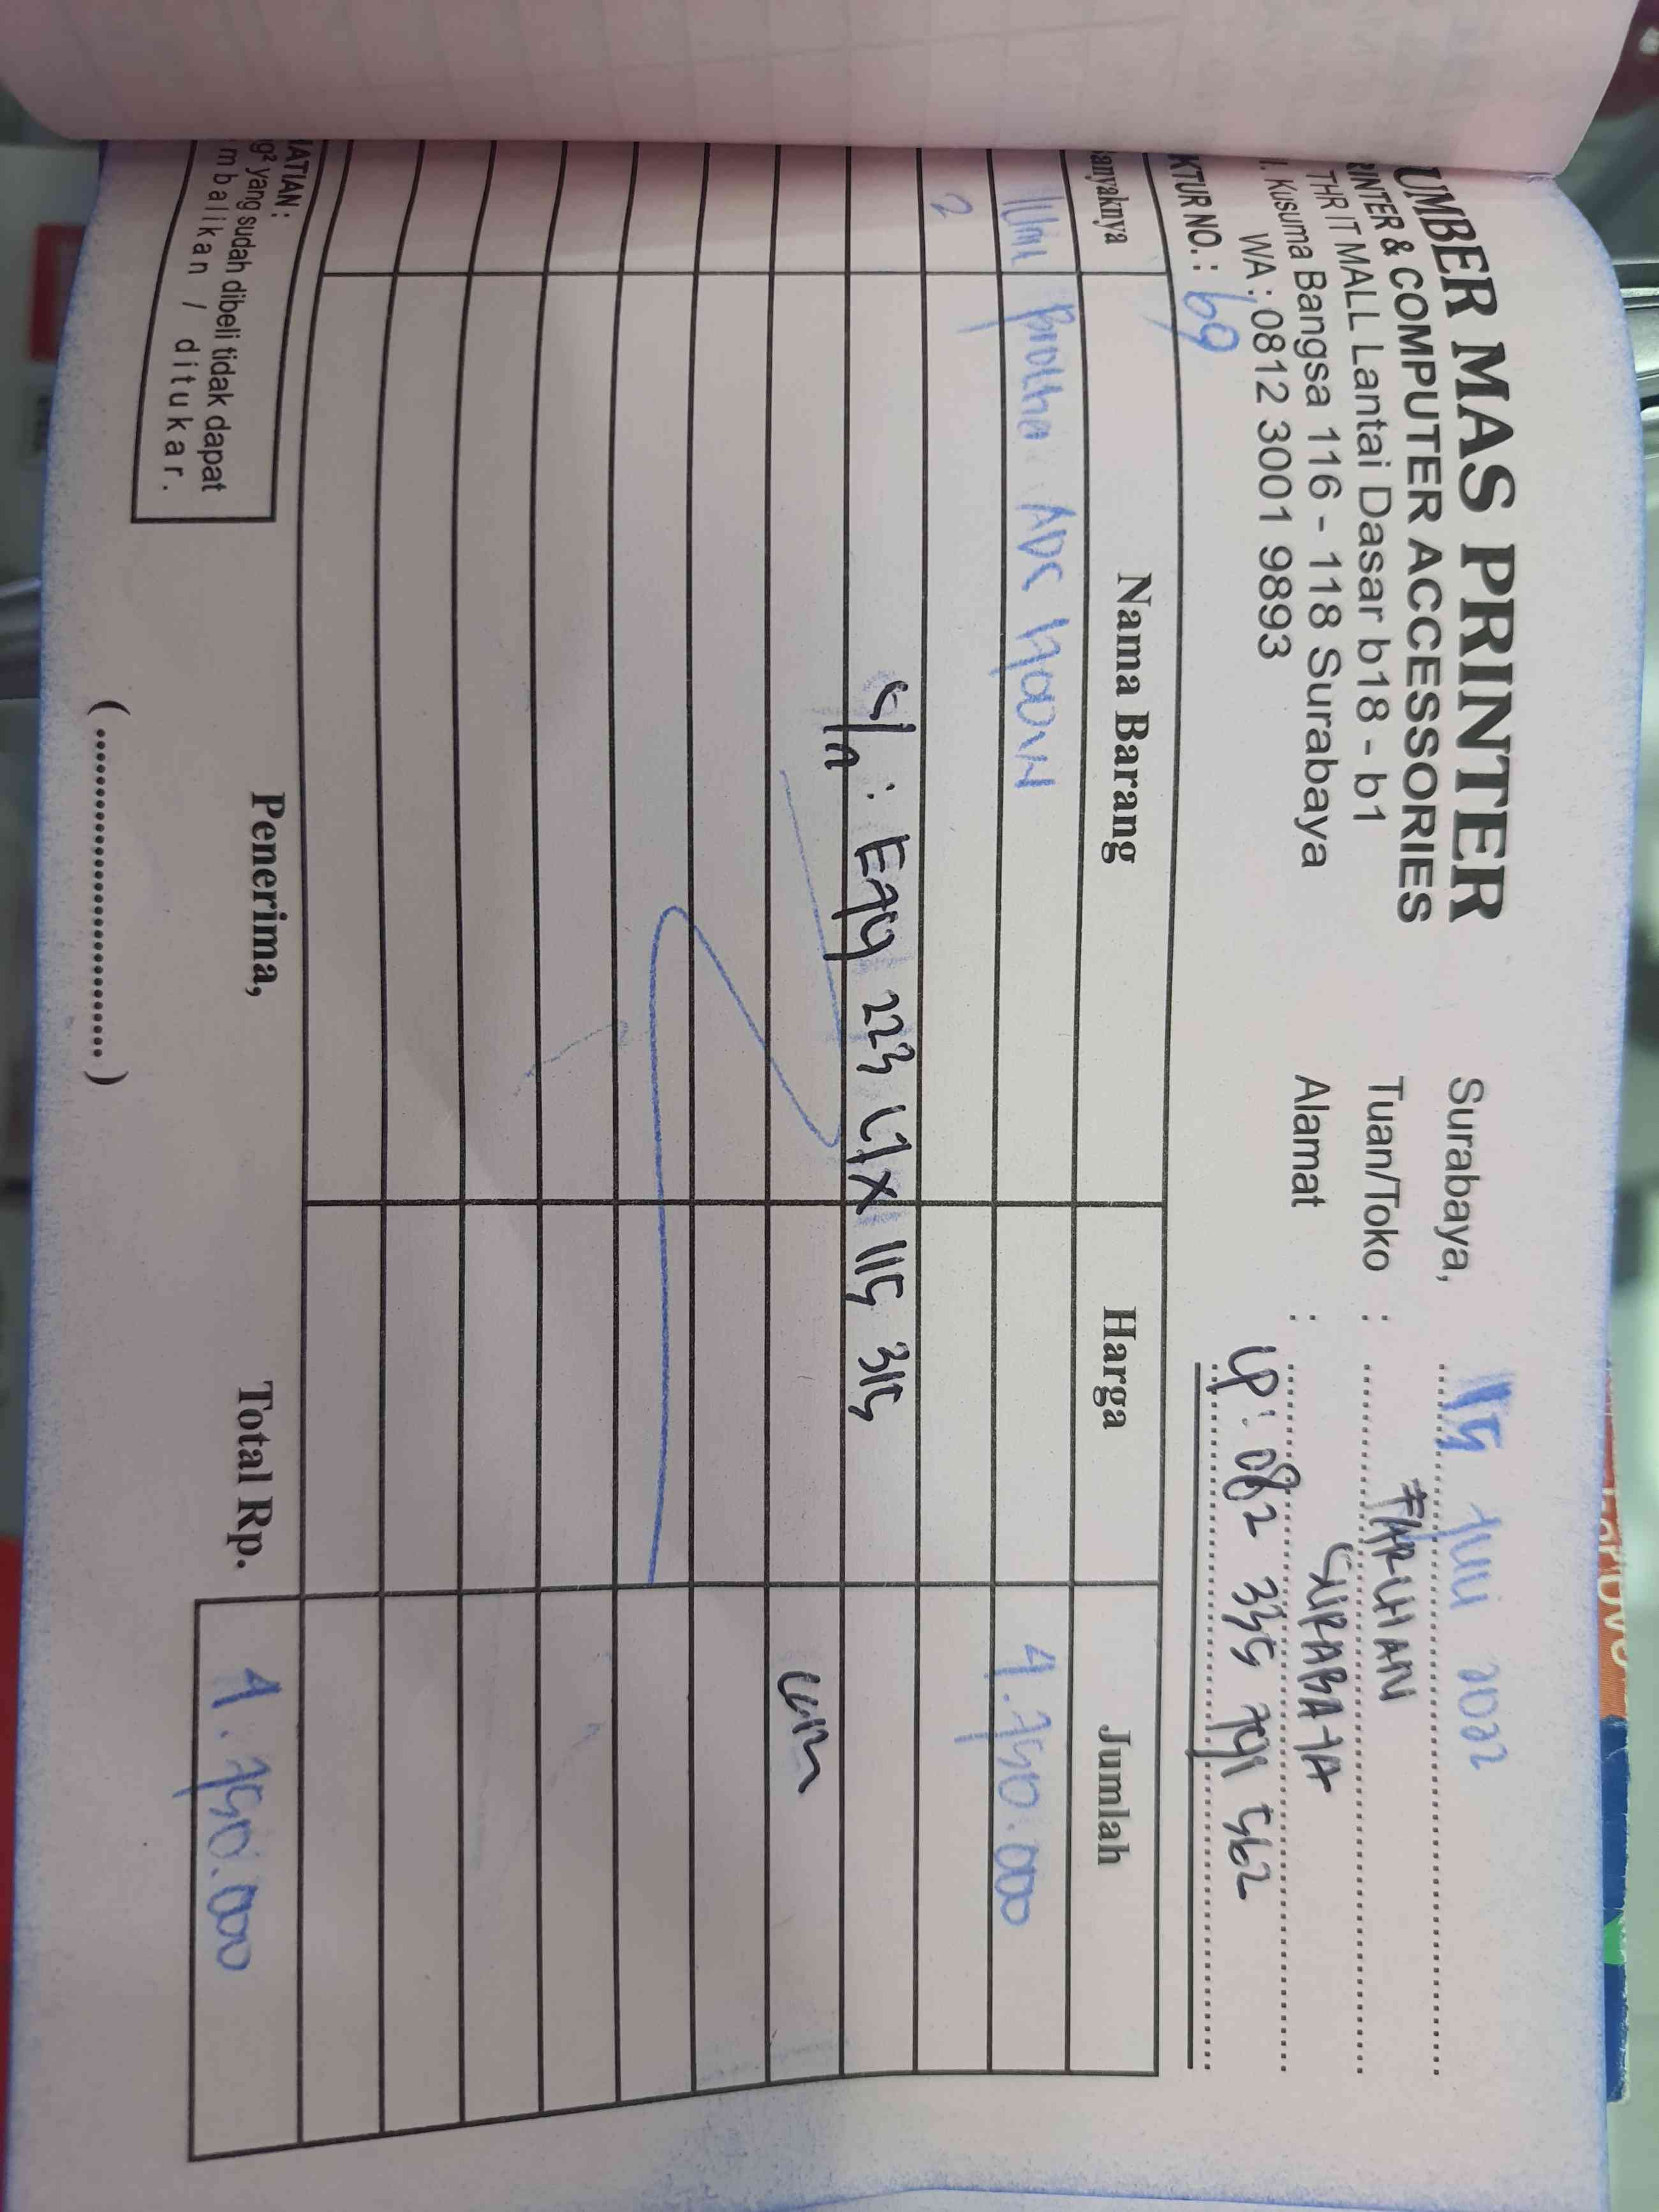 UMBER MAS PRINTER
RINTER & COMPUTER ACCESSORIES
THR IT MALL Lantai Dasar b18 - b1
l. Kusuma Bangsa 116 - 118 Surabaya
WA : 0812 3001 9893
KTUR NO. : 69
Surabaya, 15 Juni 2022
Tuan/Toko : FARCHAN
Alamat : SURABAYA
LP: 082 335 791 562
anyaknya Nama Barang Harga Jumlah
1 Uni Brother ADS 4.750.000
S/n : E79 223 L1X 115 315
Penerima, Total Rp. 4.750.000
IATIAN :
g² yang sudah dibeli tidak dapat
mbalikan / ditukar.
(....................................)